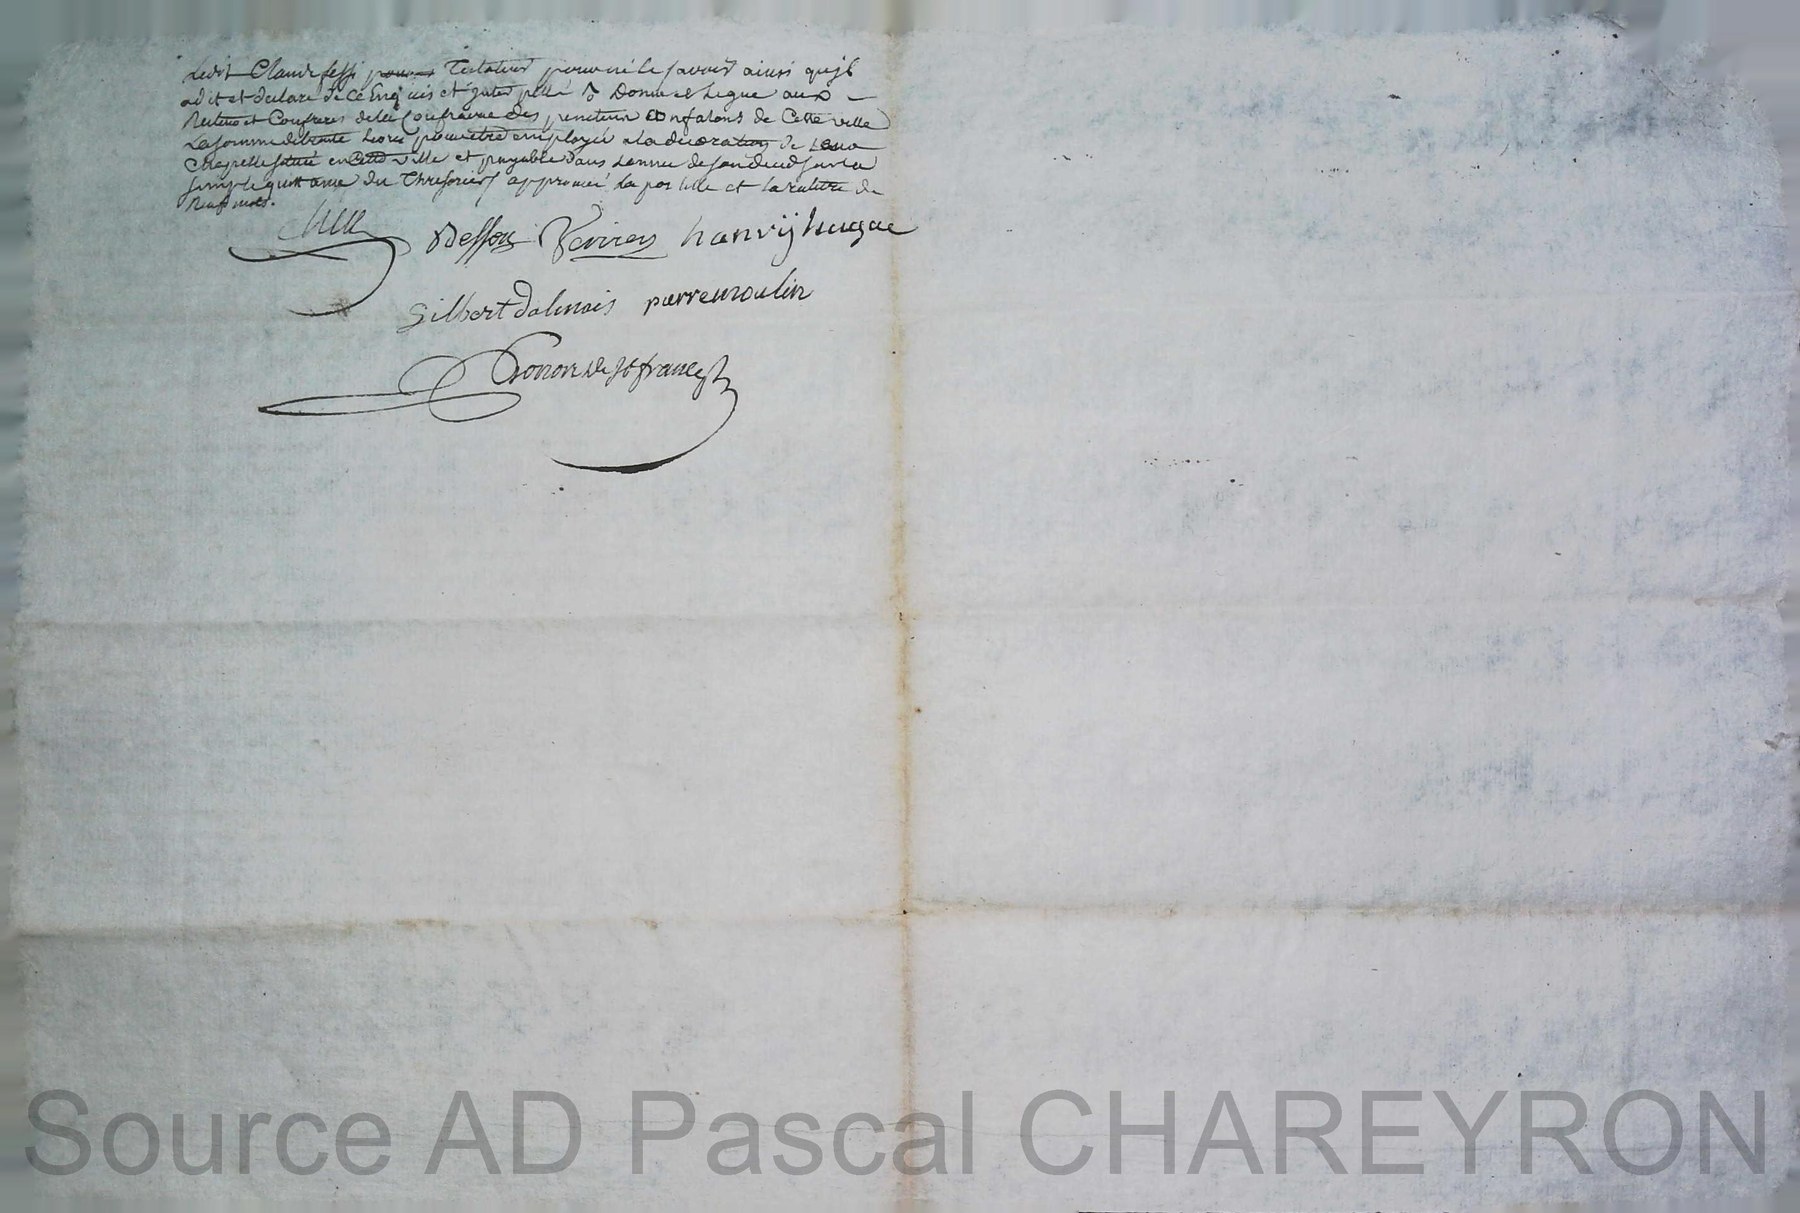 Ledit Claude fessi pour Testateur pour ne le savoir ainsi quil
a dit et declare de ce Enquis et Interpellé donne et Legue aux
Recteur et Confreres de la Confrairie des penetens Confalons de Cette ville
La somme de trente Livres pour etre employée a la decoration de Leur
Chapelle située en Cette ville et payable dans Lannee de son deces sur la
simple quittance du Thresorier approuvé la postille et la rature de
Neuf mots.
Desson Verrier hanrij hugue
Gilbert Dalmais pierre moulin
Bonon de St francois
Source AD Pascal CHAREYRON